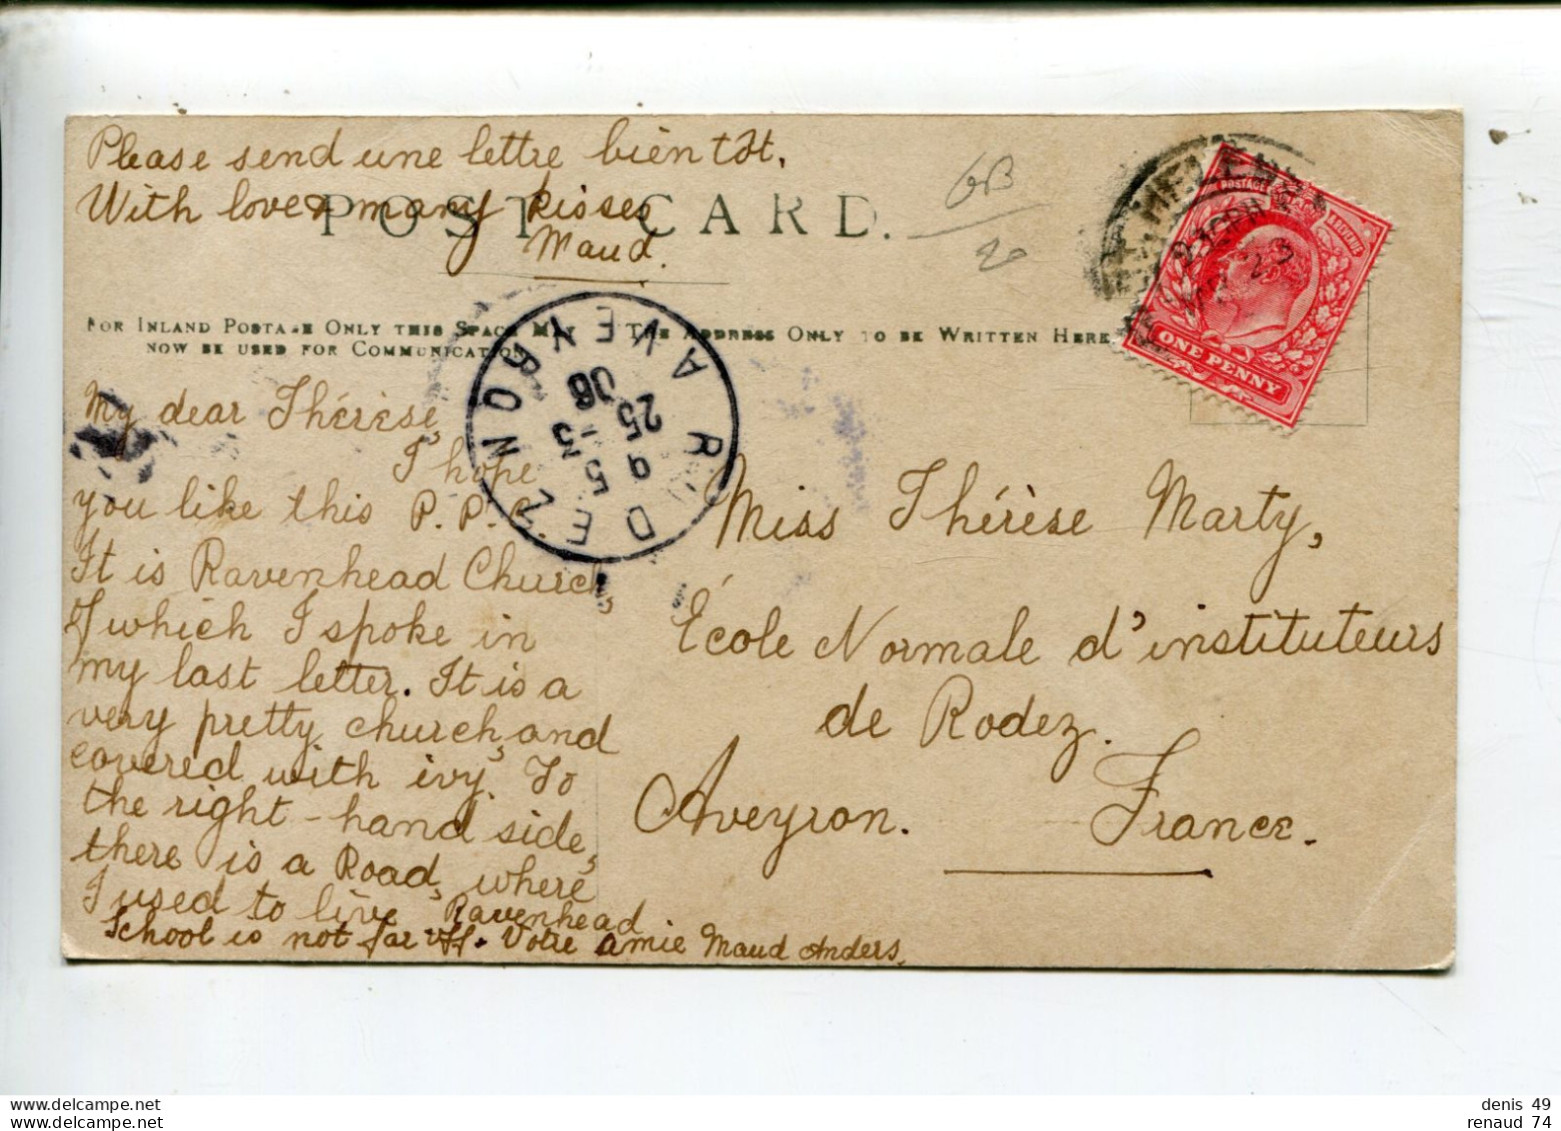 Please send une lettre bientôt.
With love & many kisses
Maud.
POST CARD.
GB
20
FOR INLAND POSTAGE ONLY THIS SPACE MAY
NOW BE USED FOR COMMUNICATION
THE ADDRESS ONLY TO BE WRITTEN HERE
POSTAGE
REVENUE
ONE PENNY
RODEZ
AVEYRON
9 25
5 -3 06
My dear Thérèse,
I hope
you like this P.P.C.
It is Ravenhead Church,
of which I spoke in
my last letter. It is a
very pretty church, and
covered with ivy. To
the right-hand side,
there is a Road, where
I used to live. Ravenhead
School is not far off. Votre amie Maud Anders.
Miss Thérèse Marty,
École Normale d'instituteurs
de Rodez.
Aveyron. France.
www.delcampe.net
www.delcampe.net
denis 49
renaud 74